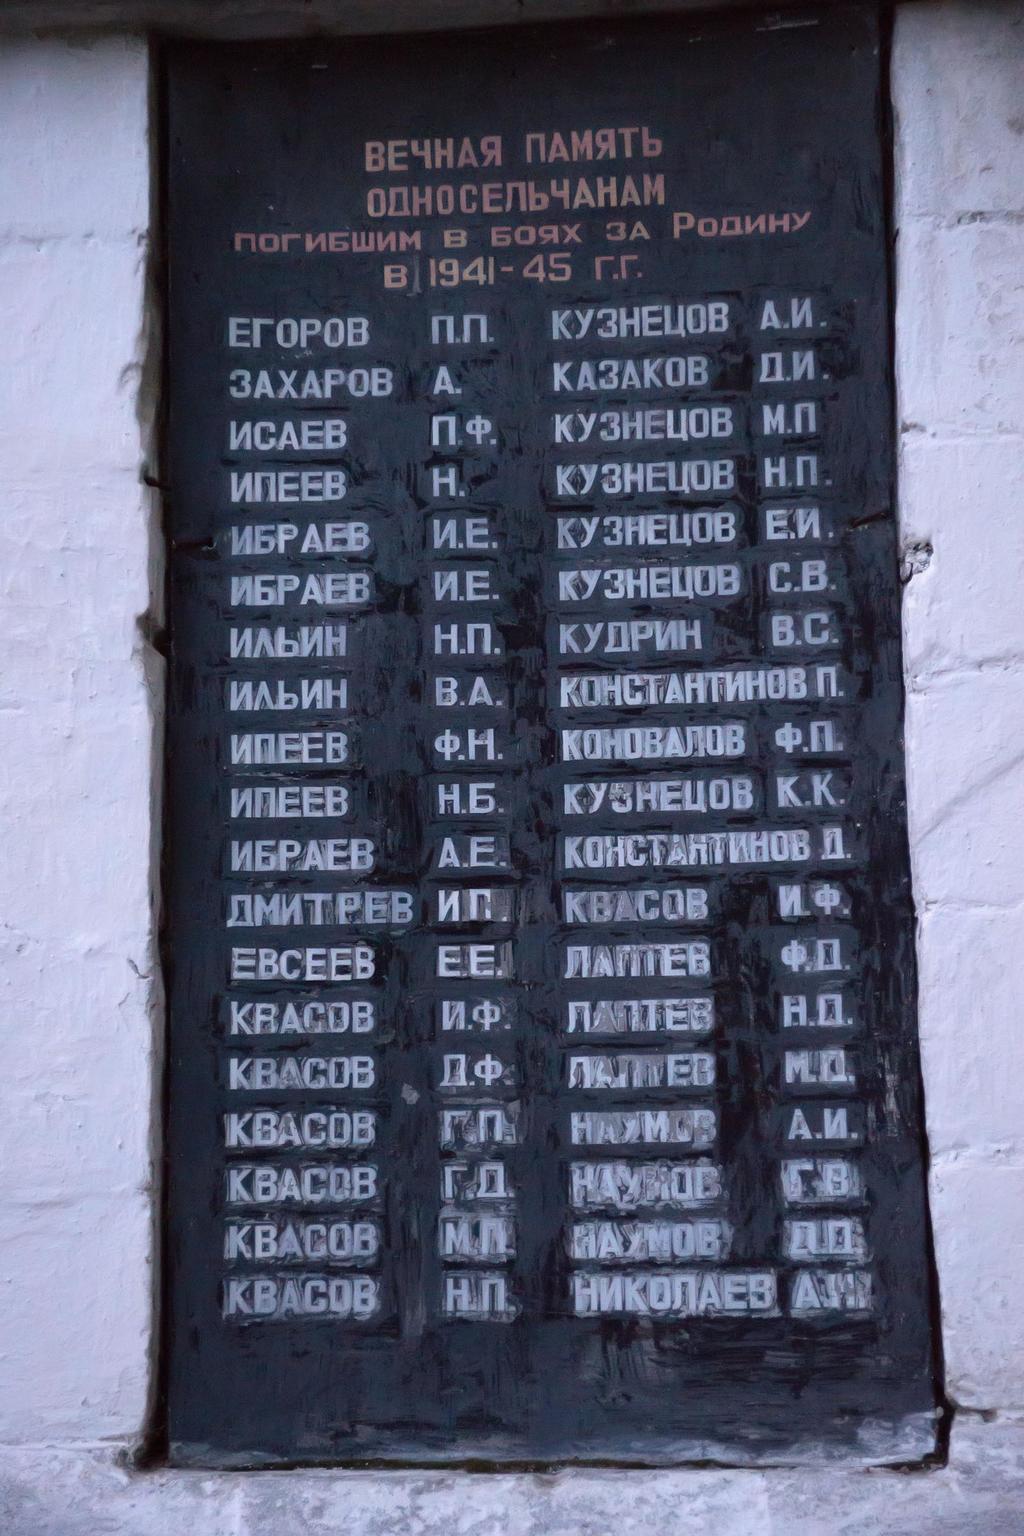 ВЕЧНАЯ ПАМЯТЬ
ОДНОСЕЛЬЧАНАМ
ПОГИБШИМ В БОЯХ ЗА РОДИНУ
В 1941-45 Г.Г.
ЕГОРОВ П.П. КУЗНЕЦОВ А.И.
ЗАХАРОВ А. КАЗАКОВ Д.И.
ИСАЕВ П.Ф. КУЗНЕЦОВ М.П
ИПЕЕВ Н. КУЗНЕЦОВ Н.П.
ИБРАЕВ И.Е. КУЗНЕЦОВ Е.И.
ИБРАЕВ И.Е. КУЗНЕЦОВ С.В.
ИЛЬИН Н.П. КУДРИН В.С.
ИЛЬИН В.А. КОНСТАНТИНОВ П.
ИПЕЕВ Ф.Н. КОНОВАЛОВ Ф.П.
ИПЕЕВ Н.Б. КУЗНЕЦОВ К.К.
ИБРАЕВ А.Е. КОНСТАНТИНОВ Д.
ДМИТРЕВ И.П. КВАСОВ И.Ф.
ЕВСЕЕВ Е.Е. ЛАПТЕВ Ф.Д.
КВАСОВ И.Ф. ЛАПТЕВ Н.Д.
КВАСОВ Д.Ф. ЛАПТЕВ
КВАСОВ Г.П. НАУМОВ А.И.
КВАСОВ Г.Д. НАУМОВ Г.В.
КВАСОВ НАУМОВ Д.Д.
КВАСОВ Н.П. НИКОЛАЕВ